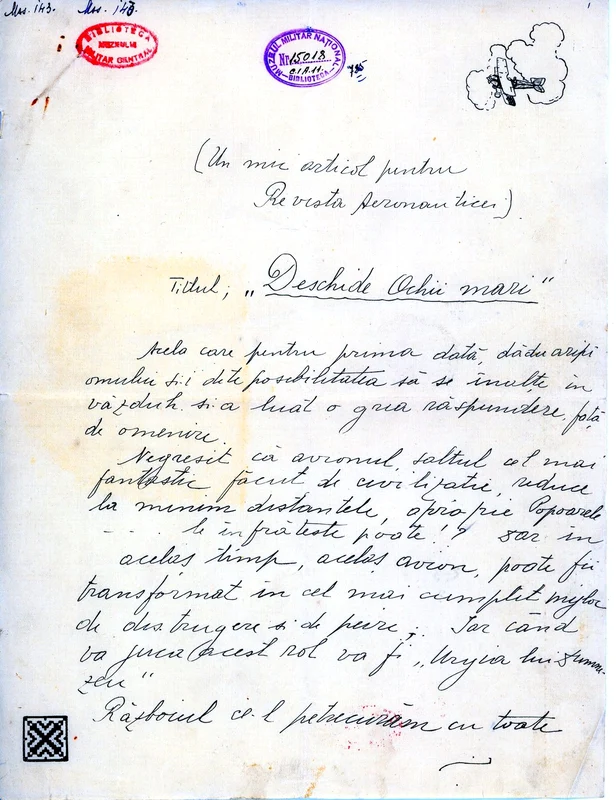 Mss. 143. Mss. 143.
BIBLIOTECA
MUZEULUI
MILITAR CENTRAL
MUZEUL MILITAR NAȚIONAL
Nr. 15013
BIBLIOTECA
(Un mic articol pentru
Revista Aeronauticei)
Titlul; „Deschide Ochii mari“
Acela care pentru prima dată, dădu aripi
omului și-i dete posibilitatea să se înalțe în
văzduh și-a luat o grea răspundere, față
de omenire.
Negreșit că avionul, saltul cel mai
fantastic făcut de civilizație, reduce
la minim distanțele, apropie Popoarele
le înfrățește poate!? Dar în
acelaș timp, acelaș avion, poate fi
transformat in cel mai cumplit mijloc
de distrugere și de peire. Iar când
va juca acest rol va fi „Urgia lui Dumne-
zeu“
Războiul ce-l petrecurăm cu toate